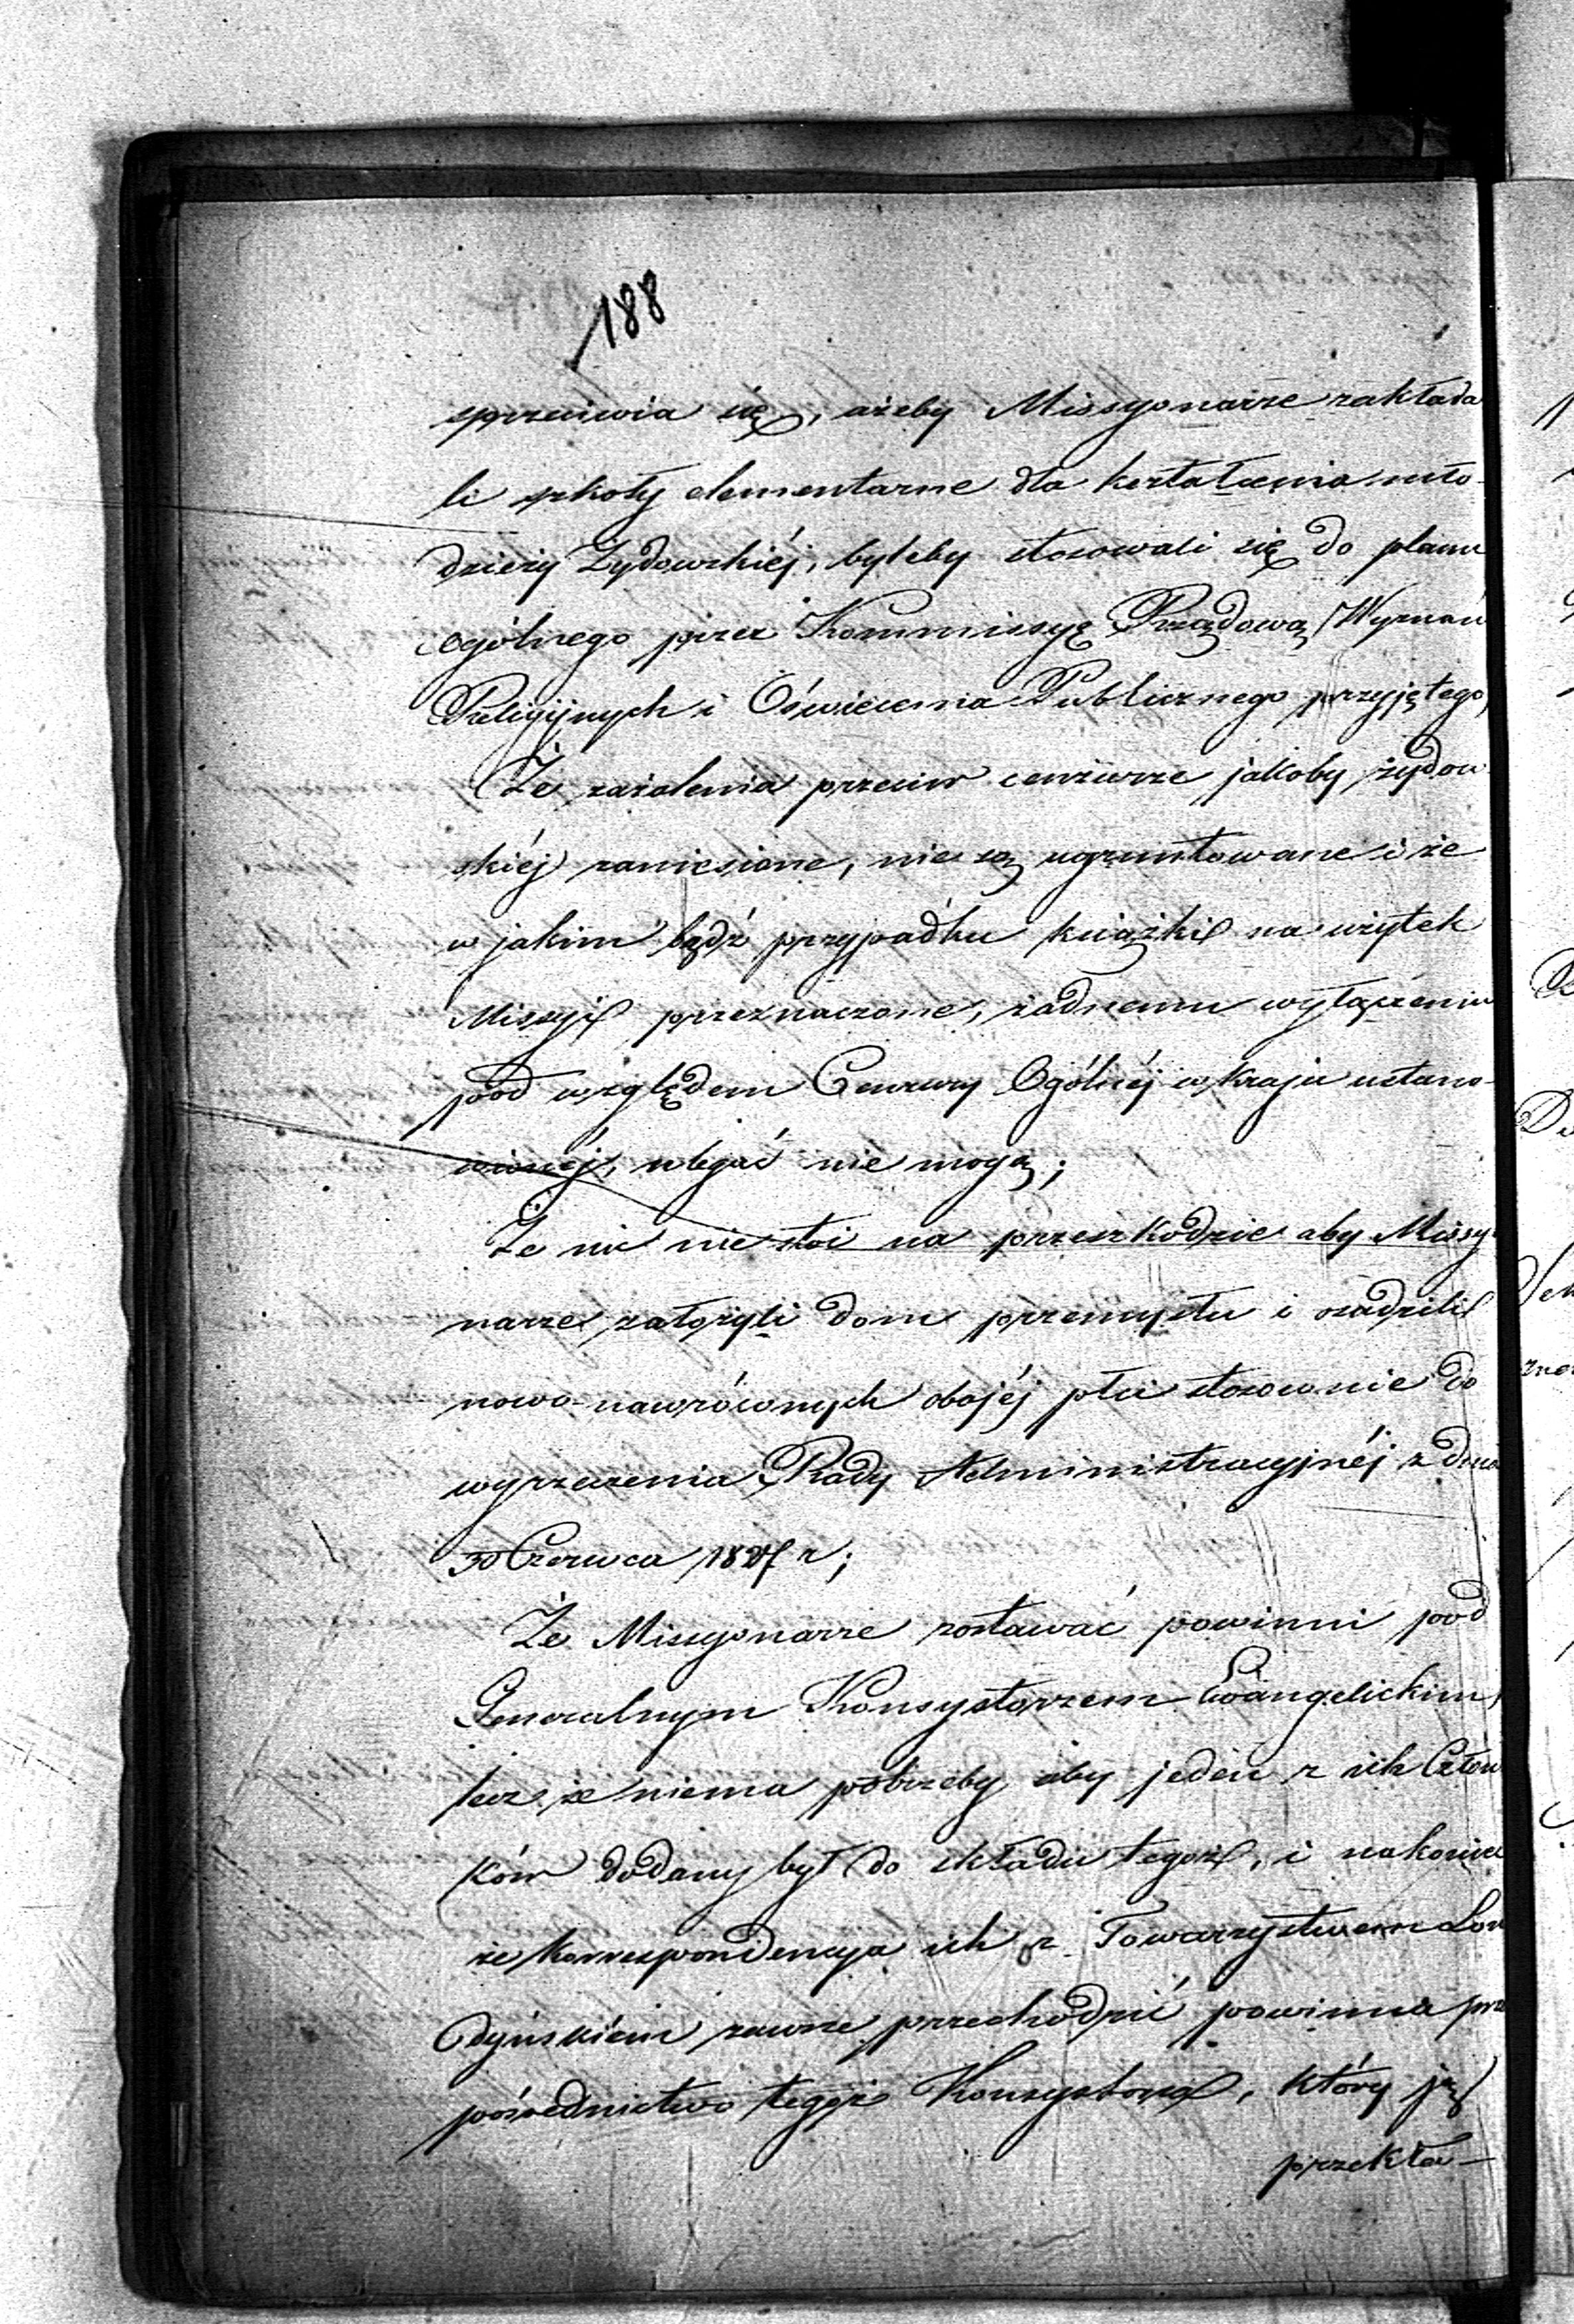 188
sprzeciwia się, ażeby Missyonarze zakłada
li szkoły elementarne dla kształcenia mło-
dzieży Żydowskiéj, byleby stosowali się do planu
ogólnego przez Kommissyę Rządową Wyznań
Religijnych i Oświecenia Publicznego przyjętego,
Że zażalenia przeciw cenzurze jakoby żydow
skiéj zaniesione, nie są ugruntowane i że
w jakim bądź przypadku książki na użytek
Missyi przeznaczone, żadnemu wyłączeniu
pod względem Cenzury Ogólnéj w Kraju ustano-
wionéj, ulegać nie mogą;
Że nic nie stoi na przeszkodzie aby Missy
narze założyli dom przemysłu i osadzili
nowo-nawróconych obojéj płci stosownie do
wyrzeczenia Rady Administracyjnéj z dnia
30 Czerwca 1827 r;
Że Missyonarze zostawać powinni pod
Generalnym Konsystorzem Ewangelickim,
lecz że niema potrzeby aby jeden z ich Człon
ków dodany był do składu tegoż, i nakoniec
że korrespondencya ich z Towarzystwem Lon
dyńskiém zawsze przechodzić powinna prz
pośrednictwo tegoż Konsystorza, który ją
przekła-